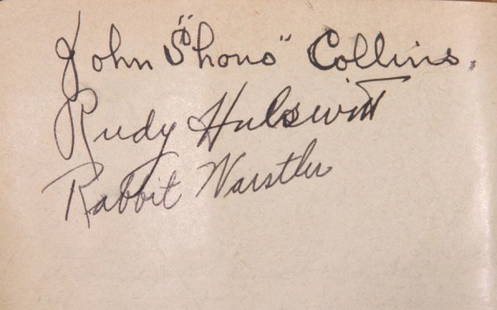 John "Shono" Collins.
Rudy Hulswitt
Rabbit Warstler